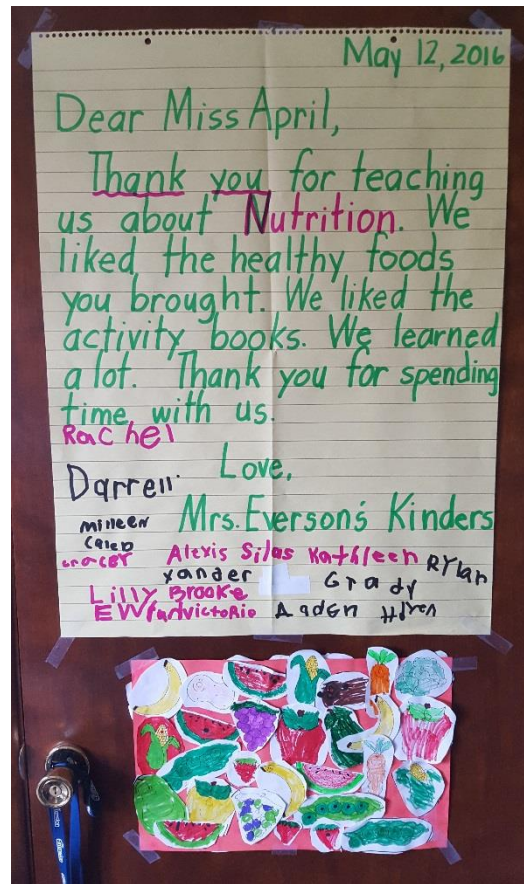 May 12, 2016
Dear Miss April,
Thank you for teaching
us about Nutrition. We
liked the healthy foods
you brought. We liked the
activity books. We learned
a lot. Thank you for spending
time with us.
Rachel
Love,
Darrell
Mrs. Everson's Kinders
milleen
Caleb
Alexis Silas Kathleen Rylan
xander Grady
Lilly Brooke
victoria Aaden